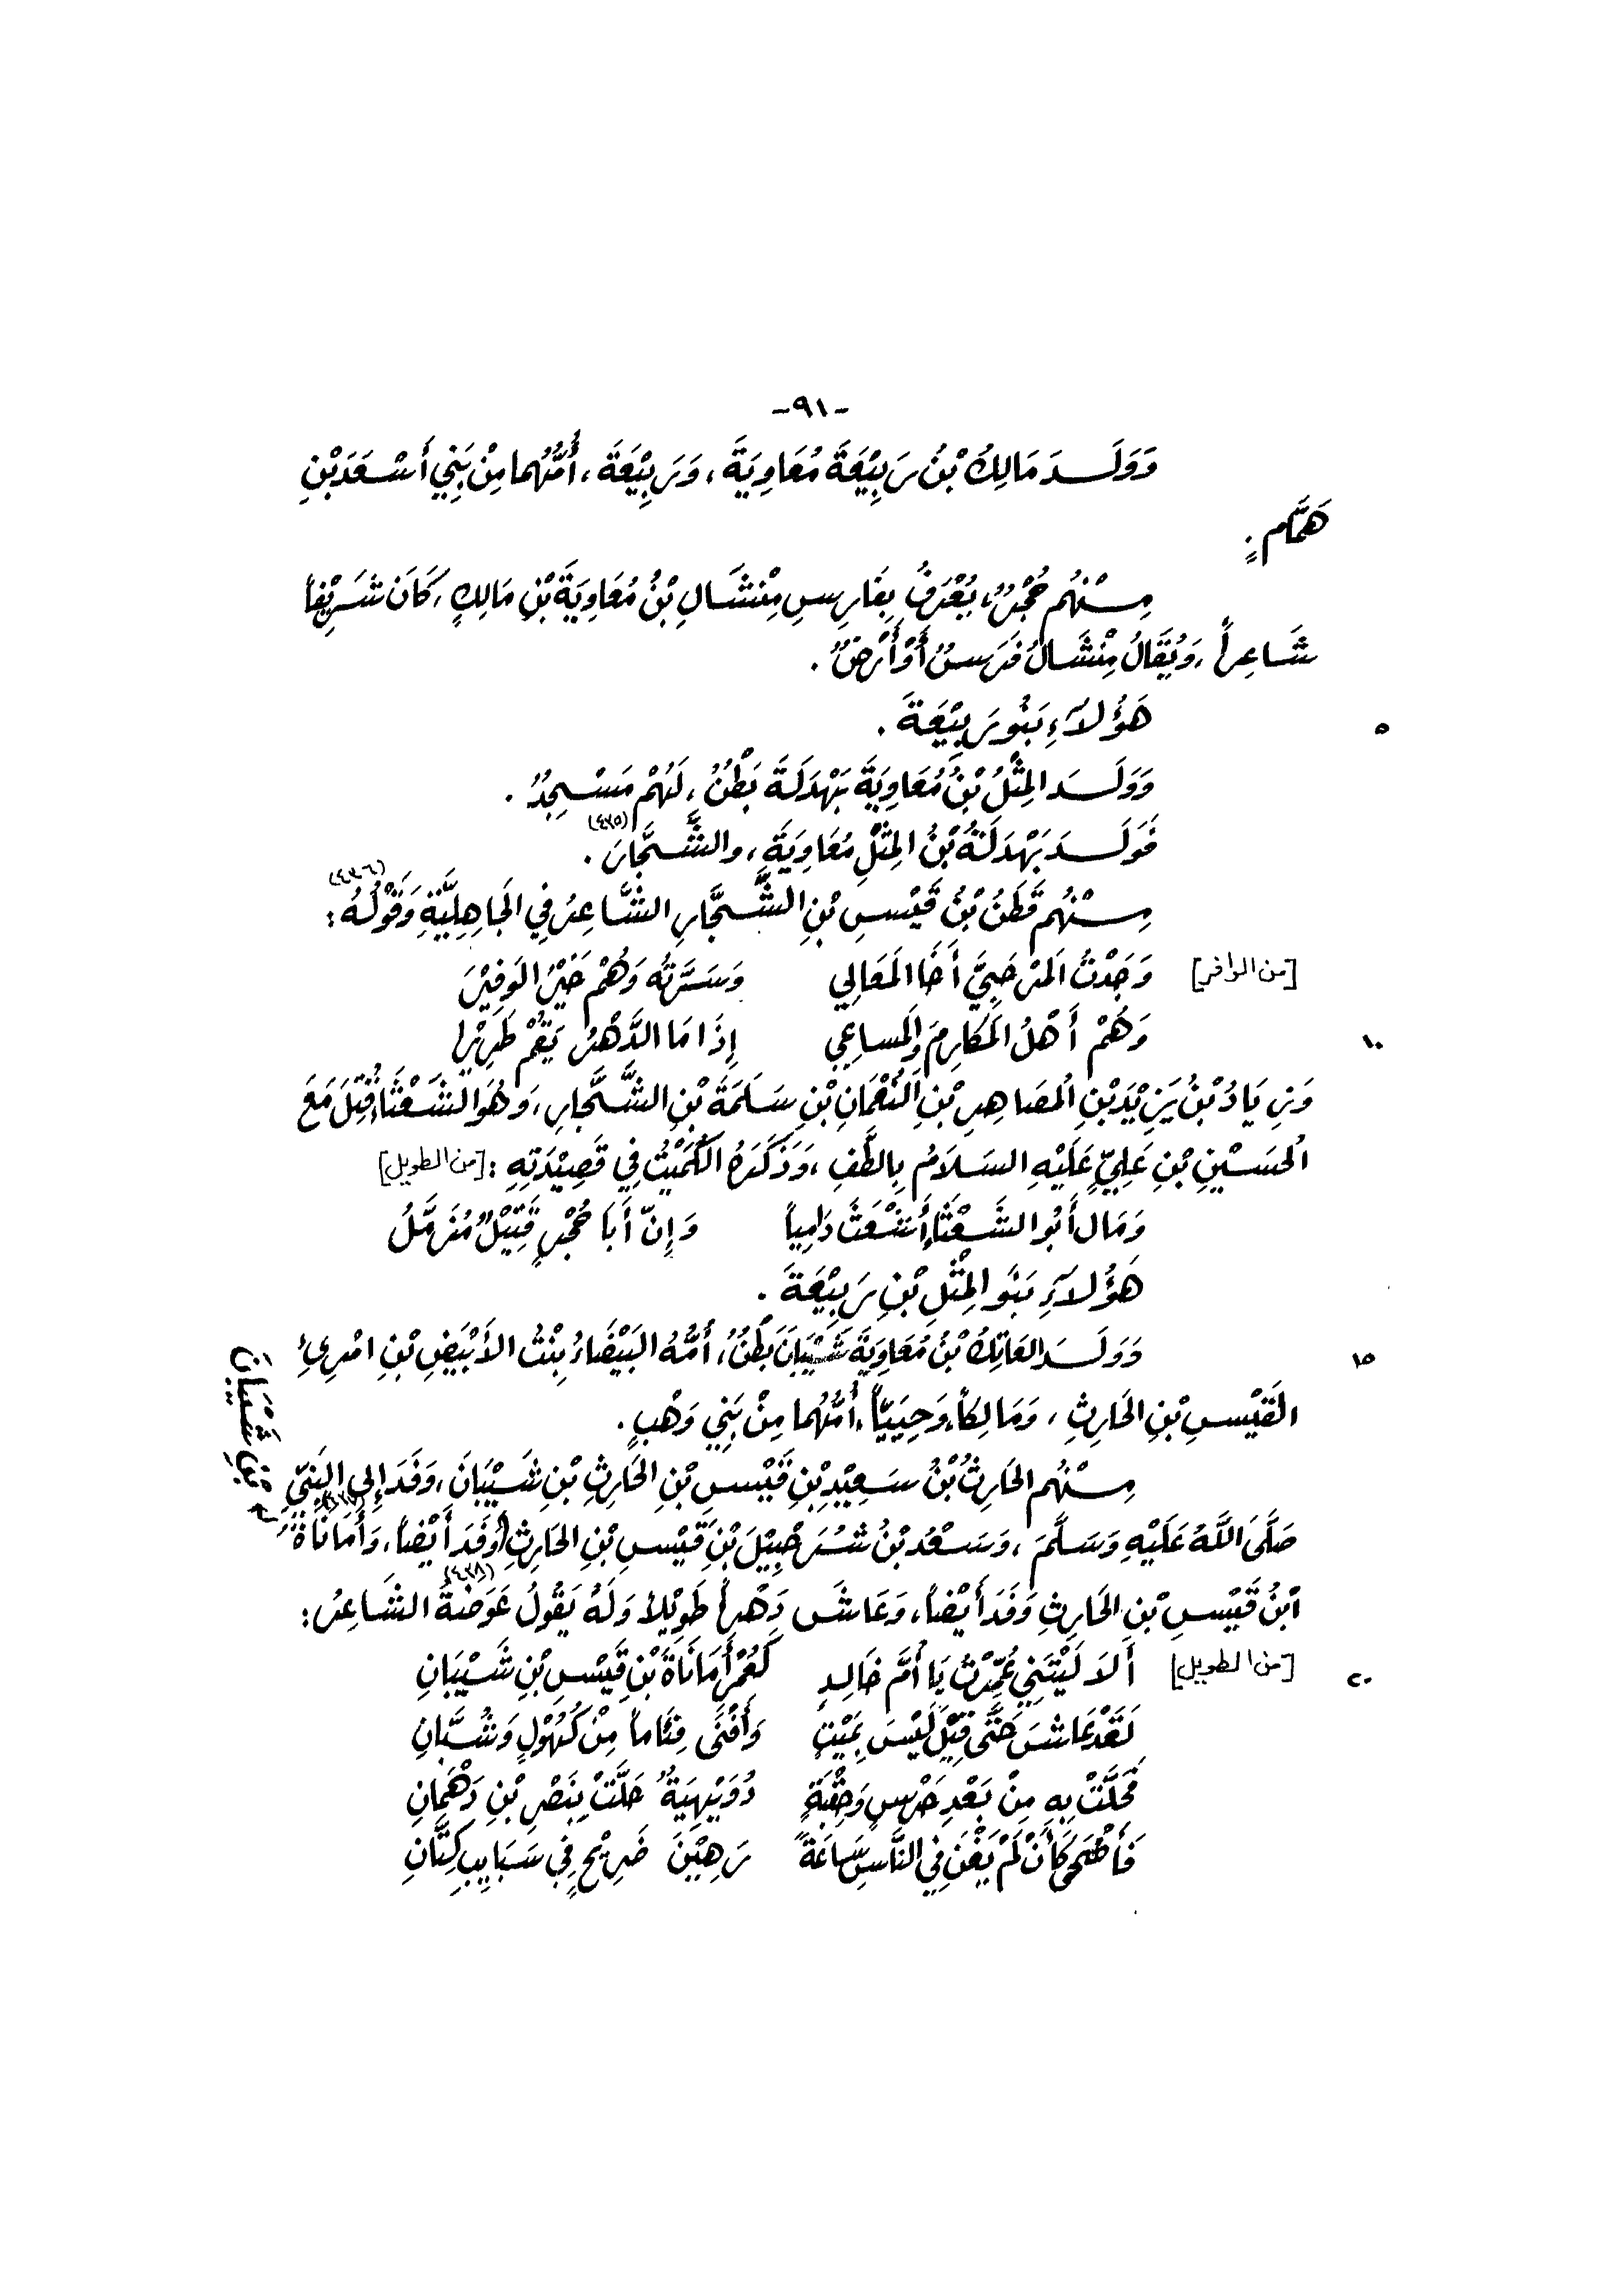 -٩١-
وَوَلَدَ مَالِكُ بْنُ رَبِيْعَةَ مُعَاوِيَةَ، وَرَبِيْعَةَ، أُمُّهُما مِنْ بَنِي أَسْعَدَ بْنِ
هَمَّامٍ.
مِنْهُم حُجْرٌ، يُعْرَفُ بِفَارِسِ مِنْشَالِ بْنُ مُعَاوِيَةَ بْنِ مَالِكٍ، كَانَ شَرِيْفاً
شَاعِراً، وَيُقَالُ مِنْشَالُ فَرَسٌ أَوْ أَرْضٌ.
هَؤُلاَءِ بَنُو رَبِيْعَةَ. ٥
وَوَلَدَ المِثْلُ بْنُ مُعَاوِيَةَ بَهْدَلَةَ بَطْنٌ، لَهُمْ مَسْجِدٌ.
فَوَلَدَ بَهْدَلَةُ بْنُ المِثْلِ مُعَاوِيَةَ، والشَّجَّارَ (٤٣٥).
مِنْهُم قَطَنُ بْنُ قَيْسِ بْنِ الشَّجَّارِ الشَّاعِرُ فِي الجَاهِلِيَّةِ وَقَوْلُهُ (٤٣٦):
[من الوافر] وَجَدْتُ المَرْحَبِيَّ أَخَا المَعَالِي وَسَرَّتُه وَهُمْ خَيْرُ الوَفِيْرَ
وَهُمْ أَهْلُ المَكارِمَ وَالمَساعِي إِذَا مَا الدَّهْرُ يَقُمْ طَرِيْرا ١٠
وَزِيَادُ بْنُ يَزِيْدَ بْنِ المُصَاهِرِ بْنِ النُّعْمَانِ بْنِ سَلَمَةَ بْنِ الشَّجَّارِ، وَهُوَ الشَعْثَاءُ قُتِلَ مَعَ
الحُسَيْنِ بْنِ عَلِيٍّ عَلَيْهِ السَلاَمُ بِالطَّفِ، وَذَكَرَهُ الكُمَيْتُ فِي قَصِيْدَتِهِ: [من الطويل]
وَمَال أَبُو الشَّعْثَاءِ أَشْعَثَ دَامِياً وَإِنّ أَبَا حُجْرٍ قَتِيْلٌ مُزَمَّلُ
هَؤُلاَءِ بَنُو المِثْلِ بْنِ رَبِيْعَةَ.
وَوَلَدَ العَاتِكُ بْنُ مُعَاوِيَةَ شَيْبَانَ بَطْنٌ، أُمُّهُ البَيْضَاءُ بِنْتُ الأَبْيَضِ بْنِ امْرِئِ ١٥
القَيْسِ بْنِ الحَارِثِ، وَمَالِكاً، وَحِيَيّاً، أُمُّهُما مِنْ بَنِي وَهْبٍ.
مِنْهُم الحَارِثُ بْنُ سَعِيْدِ بْنِ قَيْسِ بْنِ الحَارِثِ بْنِ شَيْبَانَ، وَفَدَ إِلى النَبِيِّ
صَلَّى اللَّهُ عَلَيْهِ وَسَلَّمَ، وَسَعْدُ بْنُ شُرَحْبِيْلَ بْنِ قَيْسِ بْنِ الحَارِثِ وَفَدَ أَيْضاً، وَأَمَانَاةُ
بْنِ شَيْبَانَ
ابْنُ قَيْسِ بْنِ الحَارِثِ وَفَدَ أَيْضاً، وَعَاشَ دَهْراً طَوِيْلاً وَلَهُ يَقُولُ عَوَضَةُ (٤٣٨) الشَاعِرُ:
[من الطويل] أَلاَ لَيْتَنِي عُمِّرْتُ يَا أُمَّ خَالِدٍ كَعُمْرِ أَمَانَاةَ بْنِ قَيْسِ بْنِ شَيْبَانِ ٢٠
لَقَدْ عَاشَ حَتَّى قِيْلَ لَيْسَ بِمَيْتٍ وَأَفْنَى فِئَاماً مِنْ كُهُوْلٍ وَشُبَّانِ
فَحَلَّتْ بِهِ مِنْ بَعْدِ حَرْسٍ وَحِقْبَةٍ دُوَيْهِيَةٌ حَلَّتْ بِنَصْرِ بْنِ دَهْمَانِ
فَأَضْحَى كَأَنْ لَمْ يَغْنَ فِي النَّاسِ سَاعَةً رَهِيْنَ ضَرِيْحٍ فِي سَبَايِبِ كِتَّانِ